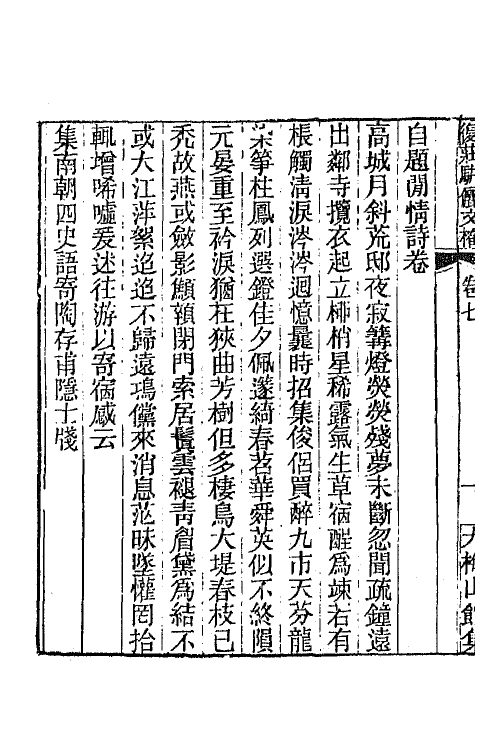 復莊駢儷文榷 卷七 一 大梅山館集
自題閒情詩卷
高城月斜荒邸夜寂篝燈熒熒殘夢未斷忽聞疏鐘遠
出鄰寺攬衣起立柳梢星稀露氣生草宿酲爲竦若有
棖觸淸淚涔涔迴憶曩時招集俊侶買醉九市天芬龍
箏柱鳳列選鐙佳夕佩邃綺春茗華舜英似不終隕
元晏重至衿淚猶在狹曲芳樹但多棲烏大堤春枝已
禿故燕或斂影顑頷閉門索居鬢雲褪靑眉黛爲結不
或大江萍絮迢迢不歸遠鴻儻來消息茫昧墜懽罔拾
輒增唏噓爰述往游以寄宿感云
集南朝四史語寄陶存甫隱士牋